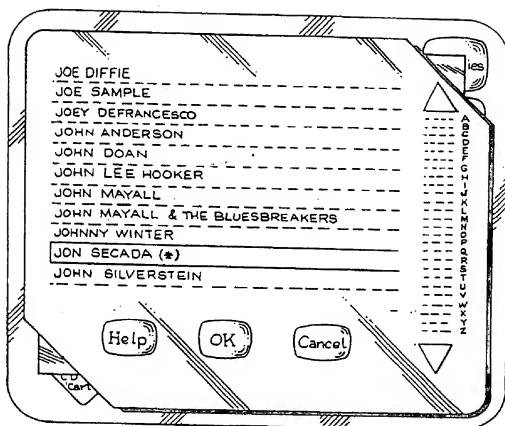 ies
JOE DIFFIE
JOE SAMPLE
JOEY DEFRANCESCO
JOHN ANDERSON
JOHN DOAN
JOHN LEE HOOKER
JOHN MAYALL
JOHN MAYALL & THE BLUESBREAKERS
JOHNNY WINTER
JON SECADA (*)
JOHN SILVERSTEIN
A
B
C
D
E
F
G
H
I
J
K
L
M
N
O
P
Q
R
S
T
U
V
W
X
Y
Z
Help
OK
Cancel
CD
Cart